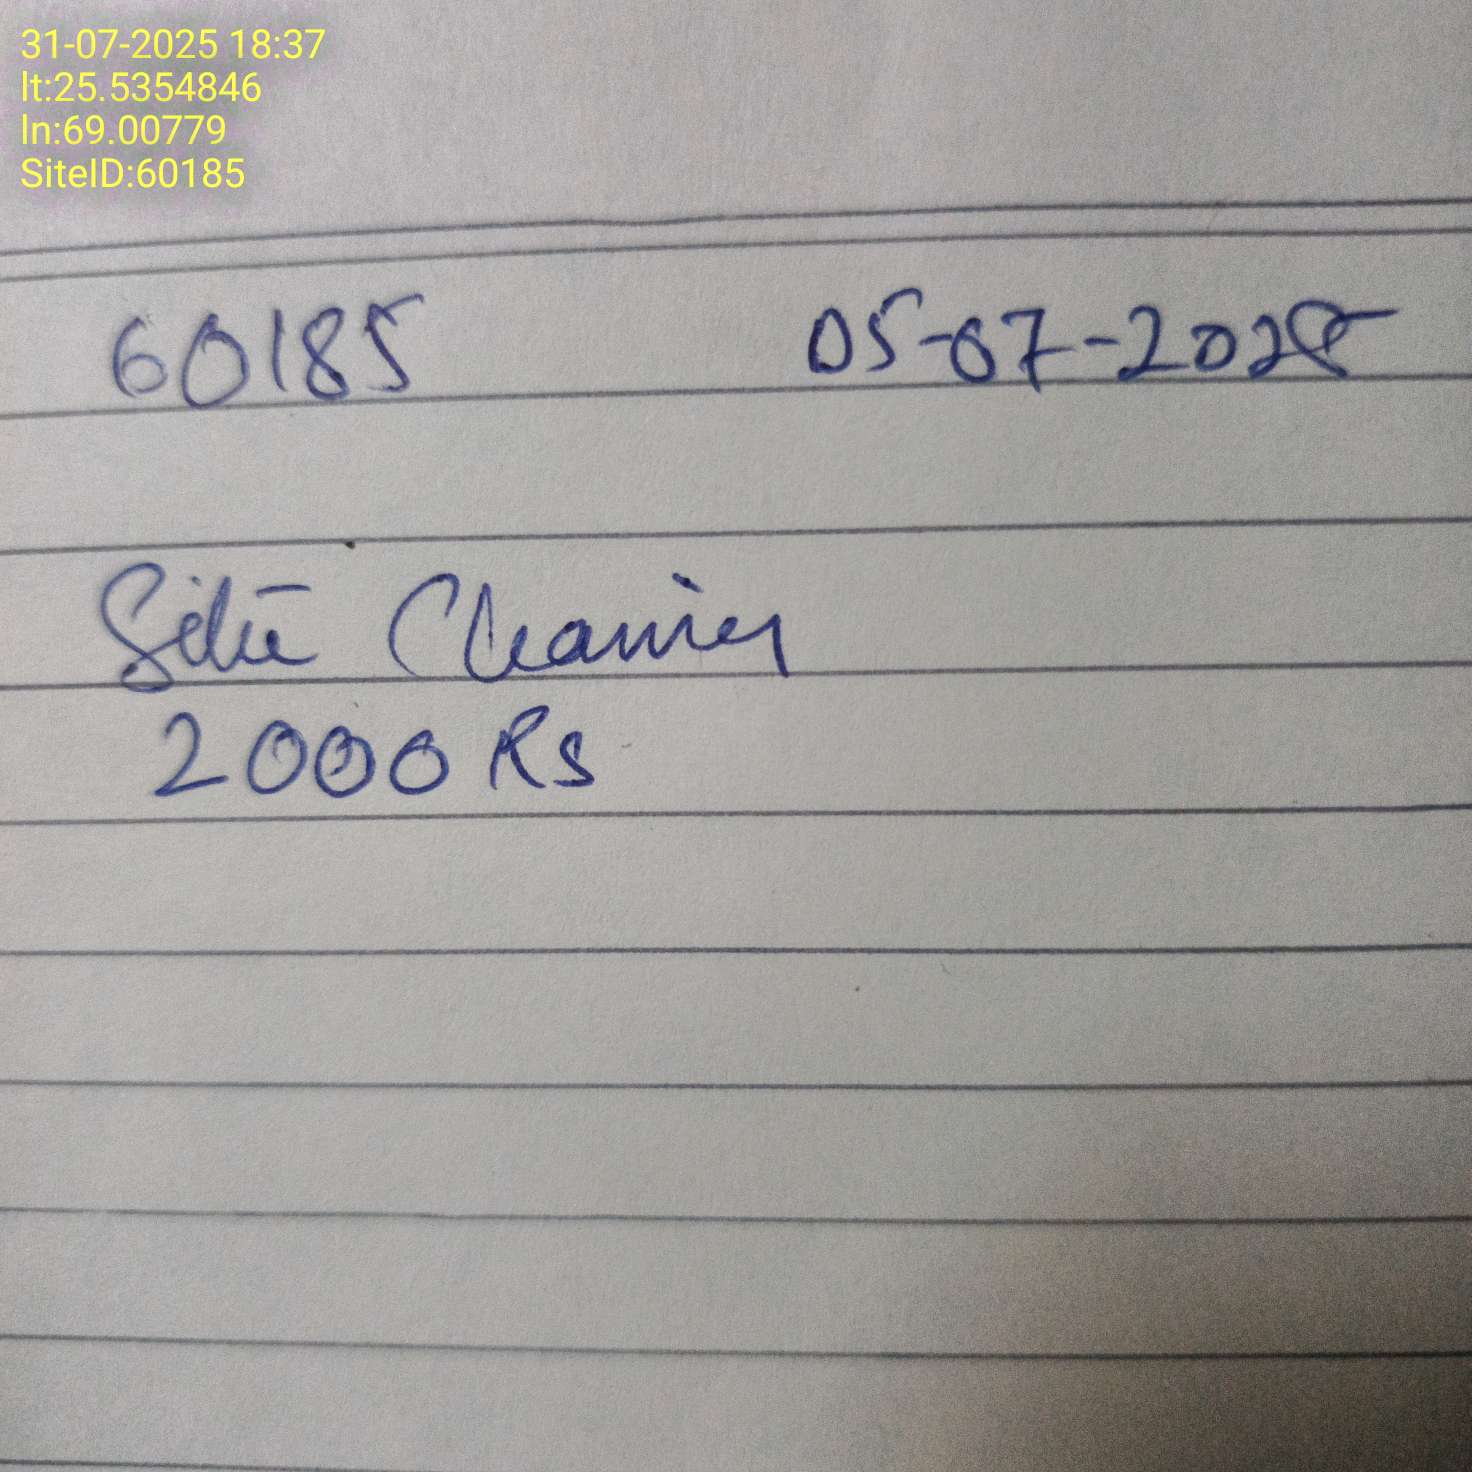 31-07-2025 18:37
lt:25.5354846
ln:69.00779
SiteID:60185
60185 05-07-2025
Site Cleaning
2000 Rs